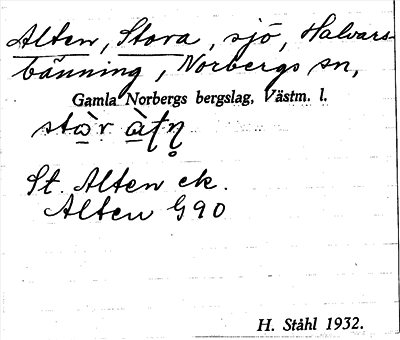 Alten, Stora, sjö, Halvars-
bänning, Norbergs sn,
Gamla Norbergs bergslag, Västm. l.
St. Alten ek.
Alten G90
H. Ståhl 1932.